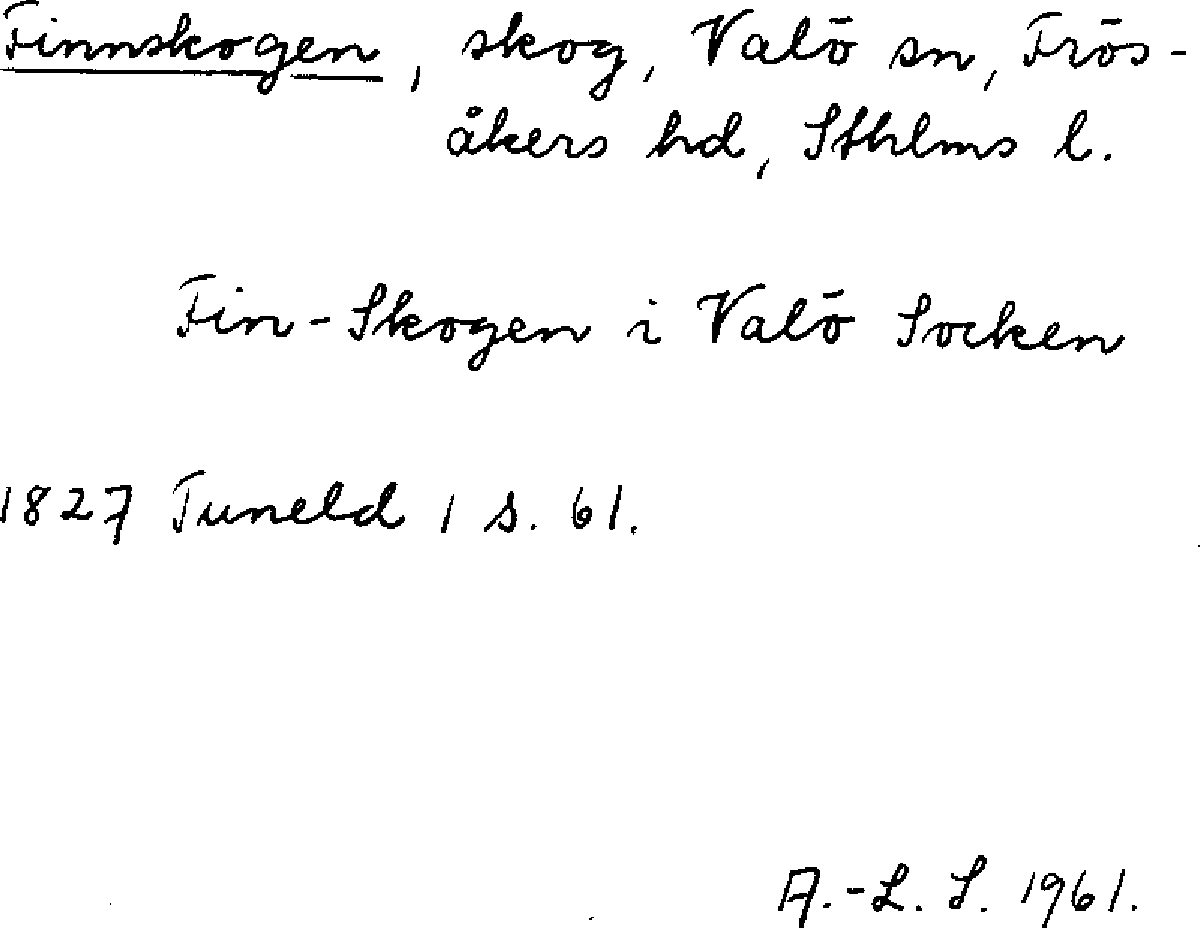 Finnskogen, skog, Valö sn, Frös-
åkers hd, Sthlms l.
Fin-Skogen i Valö Socken
1827 Tuneld 1 s. 61.
A.-L. S. 1961.